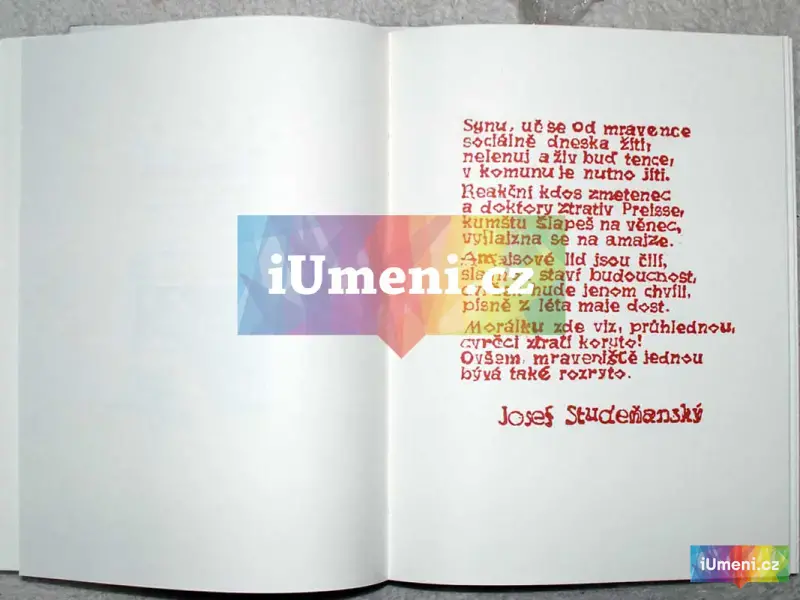 Synu, uč se od mravence
sociálně dneska žíti,
nelenuj a živ buď tence,
v komunu je nutno jíti.
Reakční kdos zmetenec
a doktory ztrativ Preisse,
kumštu šlapeš na věnec,
se na amaize.
lid jsou čilí,
staví budoucnost,
hude jenom chvíli,
písně z léta maje dost.
Morálku zde viz, průhlednou,
cvrčci ztratí koryto!
Ovšem, mraveniště jednou
bývá také rozryto.
Josef Studeňanský
iUmeni.cz
iUmeni.cz